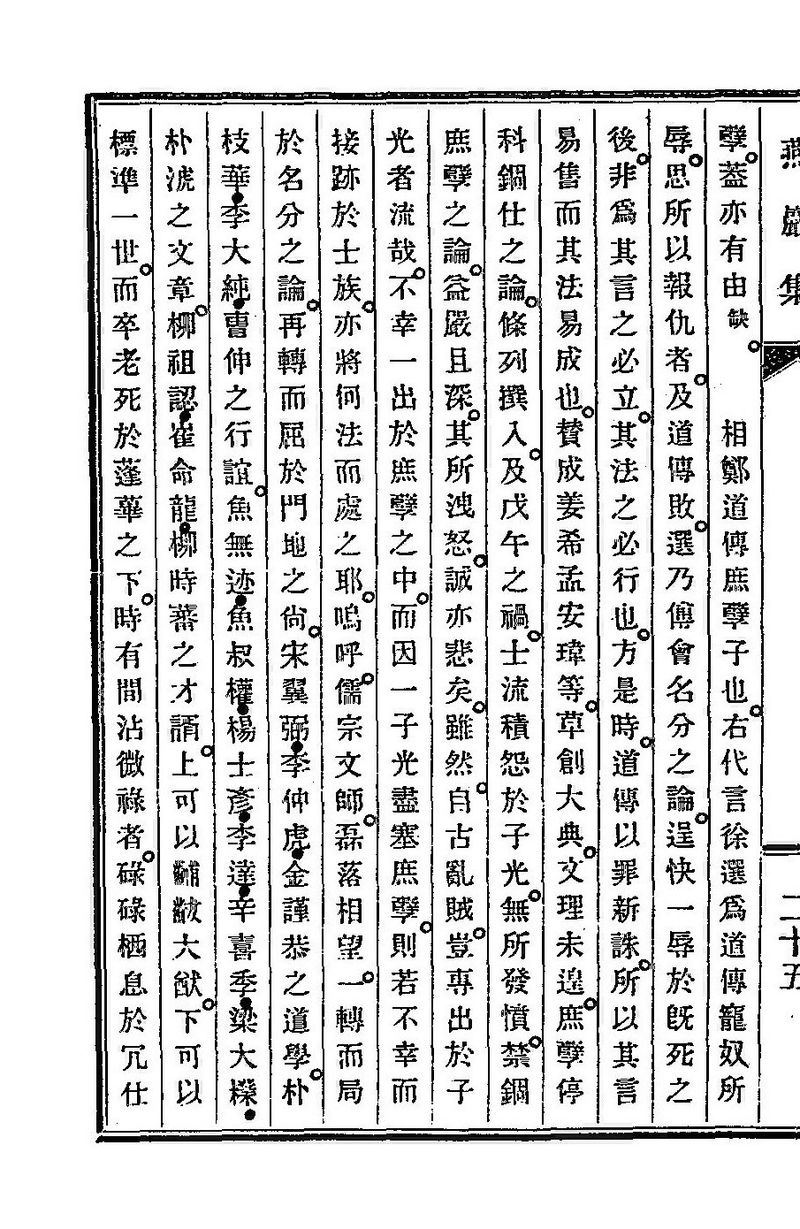 燕巖集 二十五
孽蓋亦有由缺。 相鄭道傳庶孽子也。右代言徐選爲道傳寵奴所
辱。思所以報仇者。及道傳敗。選乃傅會名分之論。逞快一辱於旣死之
後。非爲其言之必立。其法之必行也。方是時。道傳以罪新誅。所以其言
易售而其法易成也。贊成姜希孟安瑋等。草創大典。文理未遑。庶孽停
科錮仕之論。條列撰入。及戊午之禍。士流積怨於子光。無所發憤。禁錮
庶孽之論。益嚴且深。其所洩怒。誠亦悲矣。雖然。自古亂賊。豈專出於子
光者流哉。不幸一出於庶孽之中。而因一子光盡塞庶孽。則若不幸而
接跡於士族。亦將何法而處之耶。嗚呼。儒宗文師。磊落相望。一轉而局
於名分之論。再轉而屈於門地之尙。宋翼弼李仲虎金謹恭之道學。朴
枝華李大純曺伸之行誼。魚無迹魚叔權楊士彥李達辛喜季梁大樸
朴淲之文章。柳祖認崔命龍柳時蕃之才諝。上可以黼黻大猷。下可以
標準一世。而卒老死於蓬蓽之下。時有間沾微祿者。碌碌栖息於冗仕